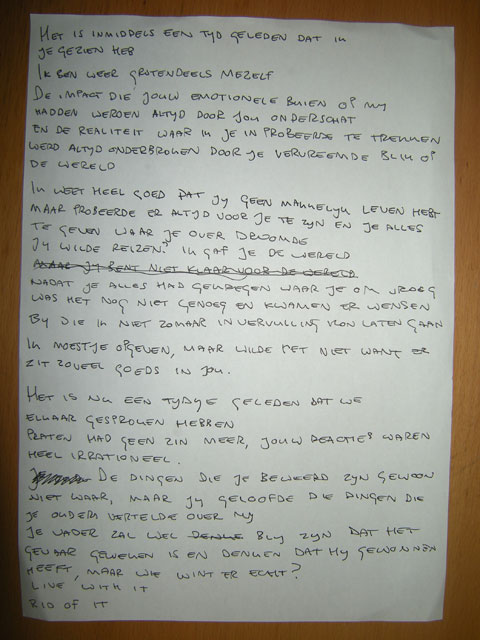 HET IS INMIDDELS EEN TYD GELEDEN DAT IK
JE GEZIEN HEB
IK BEN WEER GROTENDEELS MEZELF
DE IMPACT DIE JOUW EMOTIONELE BUIEN OP MY
HADDEN WERDEN ALTYD DOOR JOU ONDERSCHAT
EN DE REALITEIT WAAR IK JE IN PROBEERDE TE TREKKEN
WERD ALTYD ONDERBROKEN DOOR JE VERVREEMDE BLIK OP
DE WERELD
IK WEET HEEL GOED DAT JY GEEN MAKKELYK LEVEN HEBT
MAAR PROBEERDE ER ALTYD VOOR JE TE ZYN EN JE ALLES
TE GEVEN WAAR JE OVER DROOMDE
JY WILDE REIZEN? IK GAF JE DE WERELD
MAAR JY BENT NIET KLAAR VOOR DE WERELD
NADAT JE ALLES HAD GEKREGEN WAAR JE OM VROEG
WAS HET NOG NIET GENOEG EN KWAMEN ER WENSEN
BY DIE IK NIET ZOMAAR IN VERVULLING KON LATEN GAAN
IK MOEST JE OPGEVEN, MAAR WILDE HET NIET WANT ER
ZIT ZOVEEL GOEDS IN JOU.
HET IS NU EEN TYDJE GELEDEN DAT WE
ELKAAR GESPROKEN HEBBEN
PRATEN HAD GEEN ZIN MEER, JOUW REACTIES WAREN
HEEL IRRATIONEEL.
DE DINGEN DIE JE BEWEERD ZYN GEWOON
NIET WAAR, MAAR JY GELOOFDE DIE DINGEN DIE
JE OUDERS VERTELDE OVER MY
JE VADER ZAL WEL DENKE BLY ZYN DAT HET
GEVAAR GEWEKEN IS EN DENKEN DAT HY GEWONNEN
HEEFT, MAAR WIE WINT ER ECHT?
LIVE WITH IT
RID OF IT